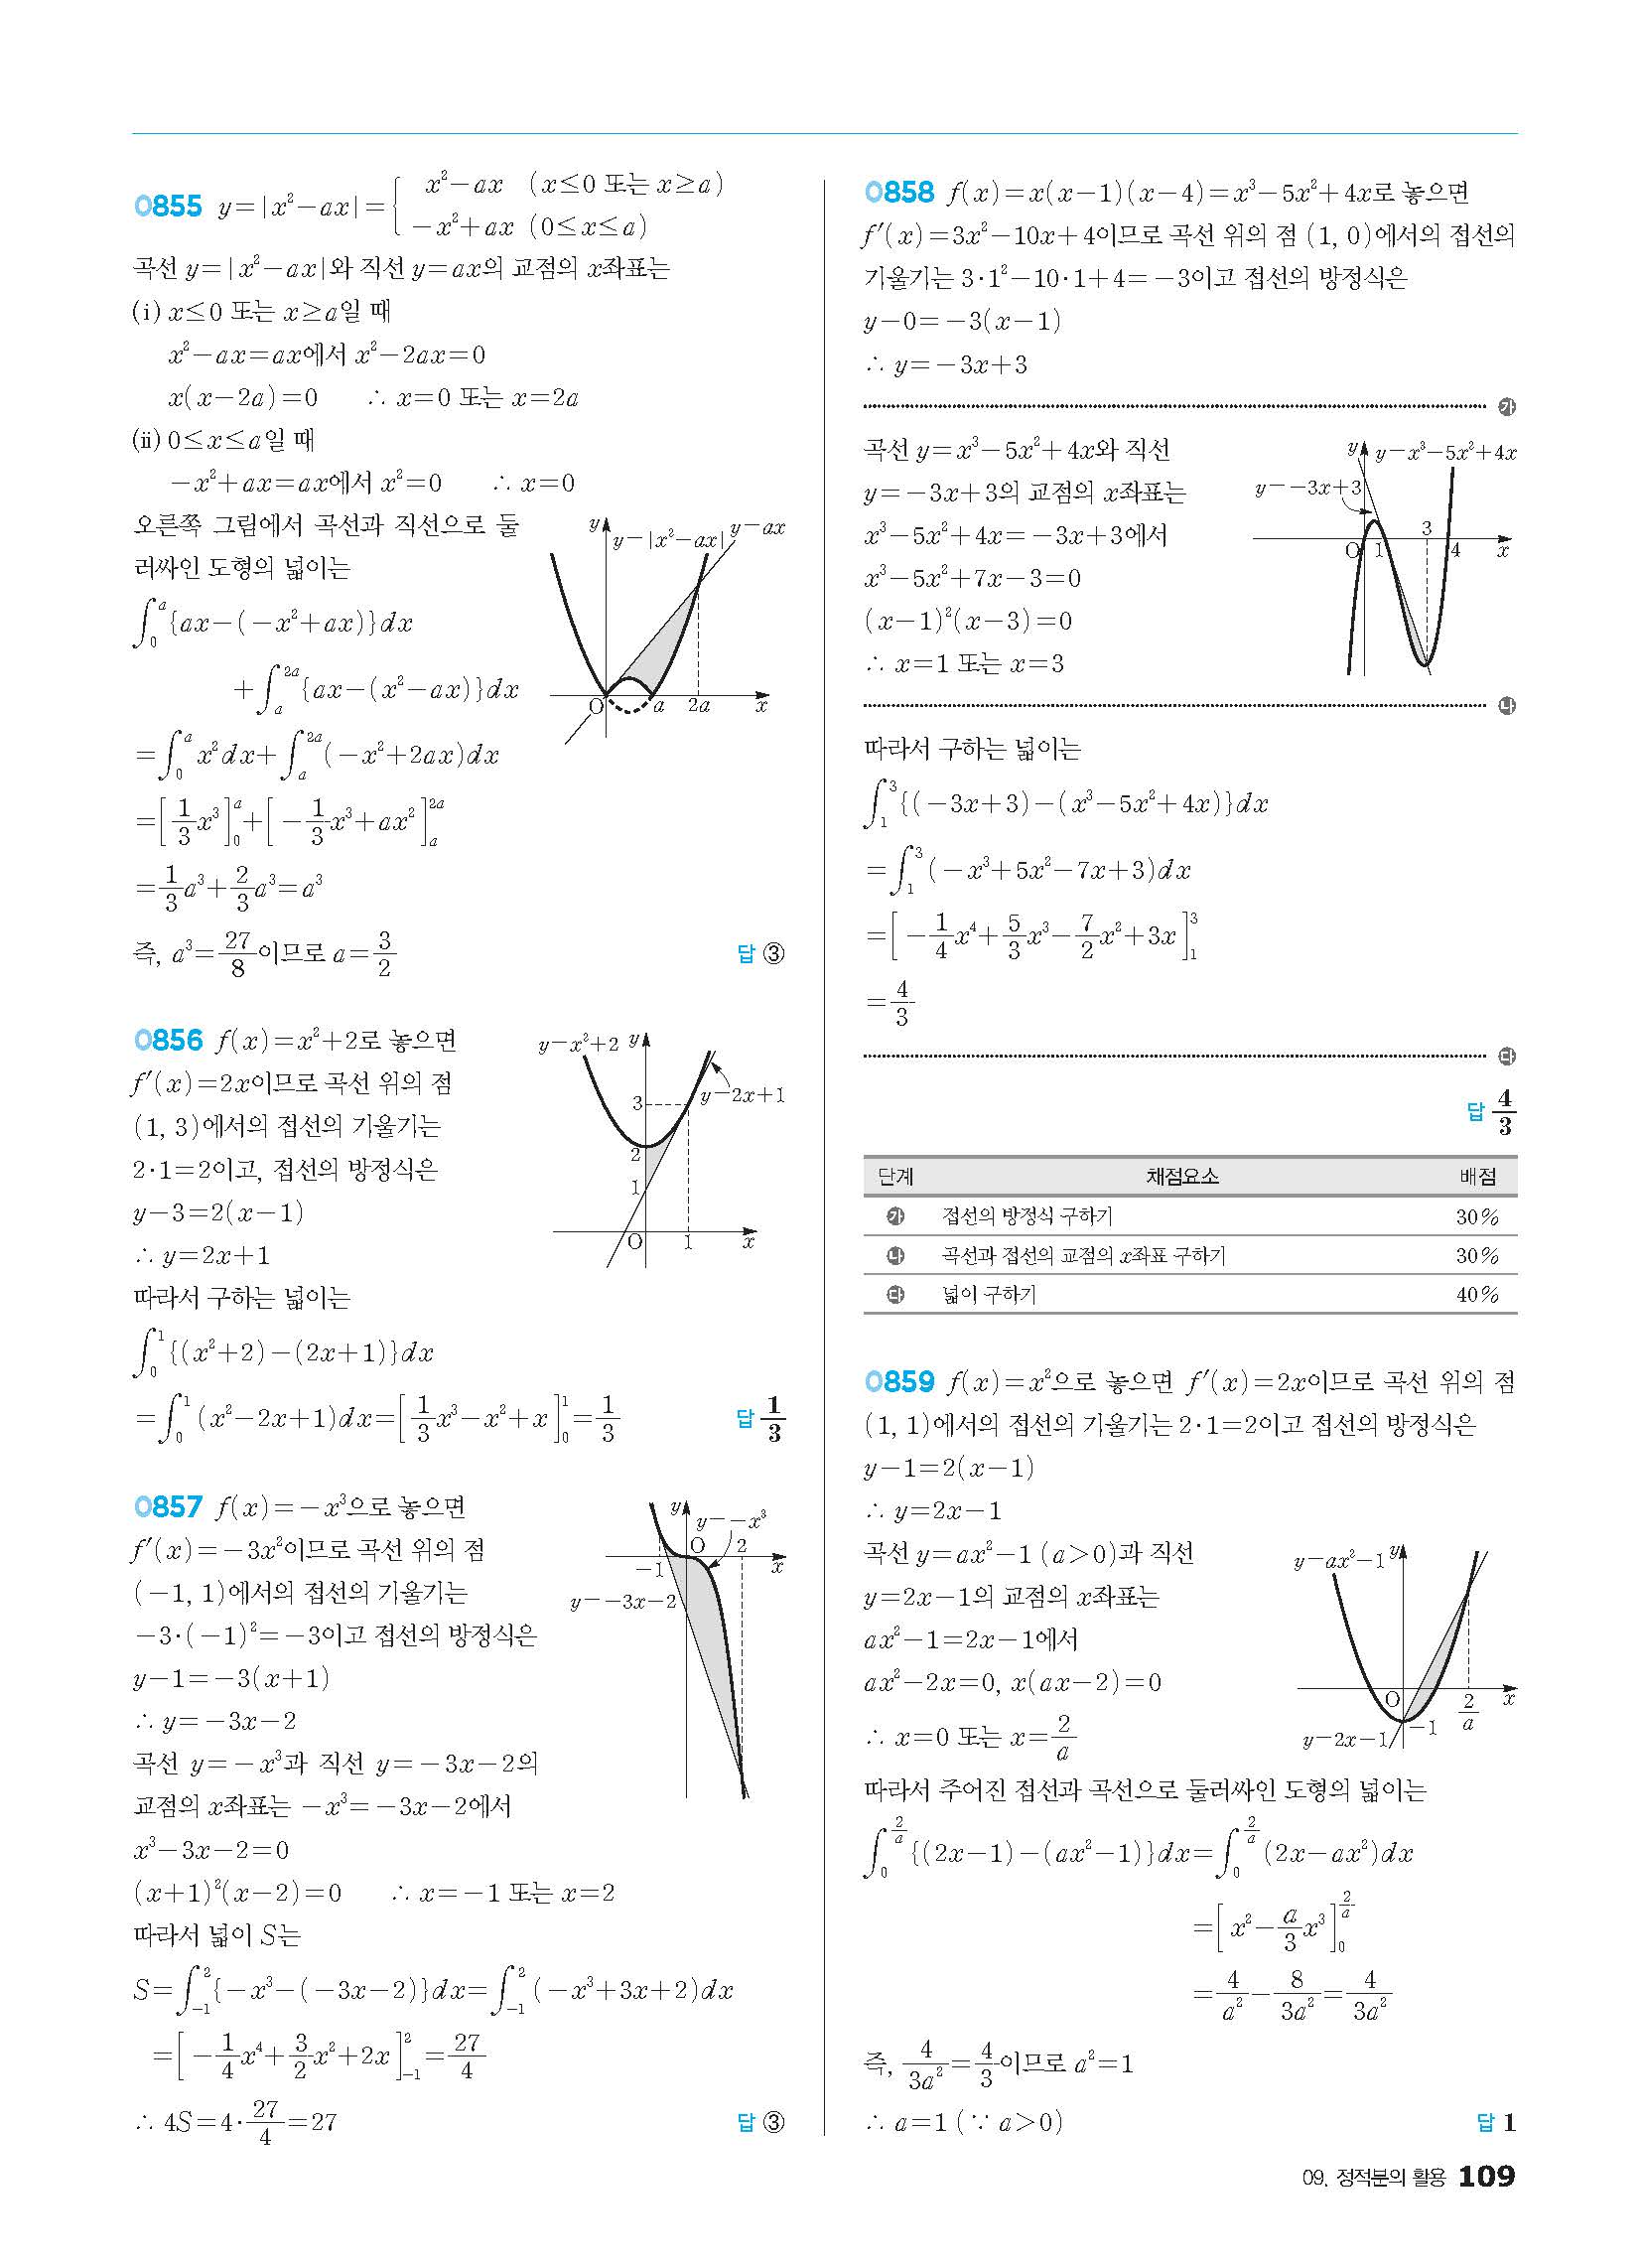 0855 y=|x²-ax|={ x²-ax (x≤0 또는 x≥a)
-x²+ax (0≤x≤a)
곡선 y=|x²-ax|와 직선 y=ax의 교점의 x좌표는
(ⅰ) x≤0 또는 x≥a일 때
x²-ax=ax에서 x²-2ax=0
x(x-2a)=0 ∴ x=0 또는 x=2a
(ⅱ) 0≤x≤a일 때
-x²+ax=ax에서 x²=0 ∴ x=0
오른쪽 그림에서 곡선과 직선으로 둘
러싸인 도형의 넓이는
y y=|x²-ax| y=ax
O a 2a x
∫₀ᵃ{ax-(-x²+ax)}dx
+∫ₐ²ᵃ{ax-(x²-ax)}dx
=∫₀ᵃ x²dx+∫ₐ²ᵃ(-x²+2ax)dx
=[1/3 x³]₀ᵃ+[-1/3 x³+ax²]ₐ²ᵃ
=1/3 a³+2/3 a³=a³
즉, a³=27/8이므로 a=3/2 답 ③
0856 f(x)=x²+2로 놓으면
f′(x)=2x이므로 곡선 위의 점
(1, 3)에서의 접선의 기울기는
2·1=2이고, 접선의 방정식은
y-3=2(x-1)
∴ y=2x+1
따라서 구하는 넓이는
y=x²+2 y
y=2x+1
3
2
1
O 1 x
∫₀¹{(x²+2)-(2x+1)}dx
=∫₀¹(x²-2x+1)dx=[1/3 x³-x²+x]₀¹=1/3 답 1/3
0857 f(x)=-x³으로 놓으면
f′(x)=-3x²이므로 곡선 위의 점
(-1, 1)에서의 접선의 기울기는
-3·(-1)²=-3이고 접선의 방정식은
y-1=-3(x+1)
∴ y=-3x-2
곡선 y=-x³과 직선 y=-3x-2의
교점의 x좌표는 -x³=-3x-2에서
x³-3x-2=0
(x+1)²(x-2)=0 ∴ x=-1 또는 x=2
따라서 넓이 S는
y y=-x³
O 2
-1 x
y=-3x-2
S=∫₋₁²{-x³-(-3x-2)}dx=∫₋₁²(-x³+3x+2)dx
=[-1/4 x⁴+3/2 x²+2x]₋₁²=27/4
∴ 4S=4·27/4=27 답 ③
0858 f(x)=x(x-1)(x-4)=x³-5x²+4x로 놓으면
f′(x)=3x²-10x+4이므로 곡선 위의 점 (1, 0)에서의 접선의
기울기는 3·1²-10·1+4=-3이고 접선의 방정식은
y-0=-3(x-1)
∴ y=-3x+3
㉮
곡선 y=x³-5x²+4x와 직선
y=-3x+3의 교점의 x좌표는
x³-5x²+4x=-3x+3에서
x³-5x²+7x-3=0
(x-1)²(x-3)=0
∴ x=1 또는 x=3
y y=x³-5x²+4x
y=-3x+3
3
O 1 4 x
㉯
따라서 구하는 넓이는
∫₁³{(-3x+3)-(x³-5x²+4x)}dx
=∫₁³(-x³+5x²-7x+3)dx
=[-1/4 x⁴+5/3 x³-7/2 x²+3x]₁³
=4/3
㉰
답 4/3
단계 채점요소 배점
㉮ 접선의 방정식 구하기 30%
㉯ 곡선과 접선의 교점의 x좌표 구하기 30%
㉰ 넓이 구하기 40%
0859 f(x)=x²으로 놓으면 f′(x)=2x이므로 곡선 위의 점
(1, 1)에서의 접선의 기울기는 2·1=2이고 접선의 방정식은
y-1=2(x-1)
∴ y=2x-1
곡선 y=ax²-1 (a>0)과 직선
y=2x-1의 교점의 x좌표는
ax²-1=2x-1에서
ax²-2x=0, x(ax-2)=0
∴ x=0 또는 x=2/a
y=ax²-1 y
O 2/a x
y=2x-1 -1
따라서 주어진 접선과 곡선으로 둘러싸인 도형의 넓이는
∫₀^(2/a){(2x-1)-(ax²-1)}dx=∫₀^(2/a)(2x-ax²)dx
=[x²-a/3 x³]₀^(2/a)
=4/a²-8/3a²=4/3a²
즉, 4/3a²=4/3이므로 a²=1
∴ a=1 (∵ a>0) 답 1
09. 정적분의 활용 109